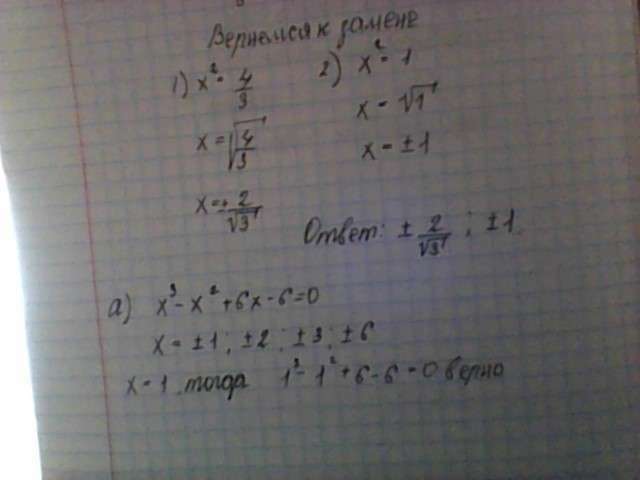 Вернемся к замене
1) x² = 4/3
x = √(4/3)
x = ± 2/√3
2) x² = 1
x = √1
x = ±1
Ответ: ± 2/√3 ; ±1.
а) x³ - x² + 6x - 6 = 0
x = ±1; ±2; ±3; ±6
x = 1 тогда 1³ - 1² + 6 - 6 = 0 верно